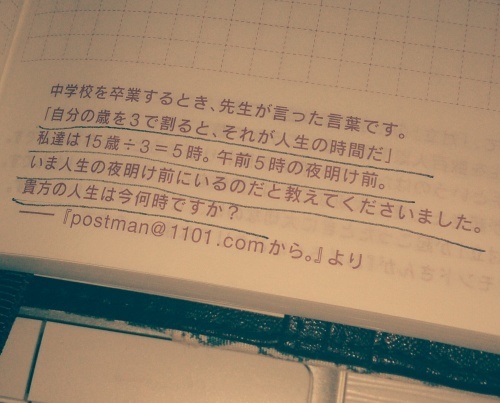 中学校を卒業するとき、先生が言った言葉です。
「自分の歳を3で割ると、それが人生の時間だ」
私達は15歳÷3=5時。午前5時の夜明け前。
いま人生の夜明け前にいるのだと教えてくださいました。
貴方の人生は今何時ですか?
――『postman@1101.comから。』より